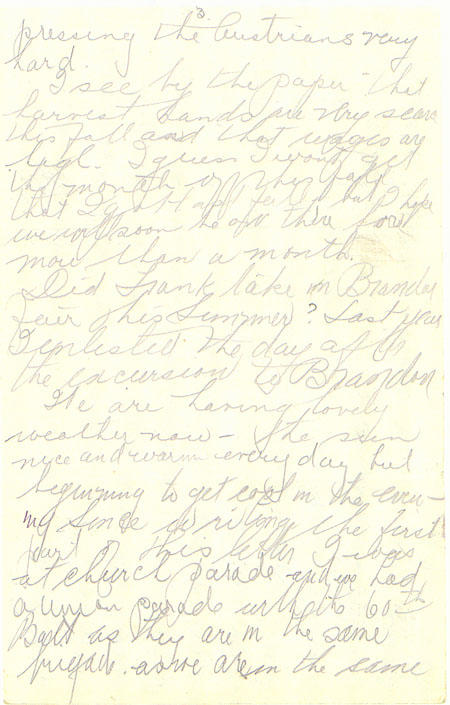 3.
pressing the Austrians very
hard.
I see by the paper that
harvest hands are very scarce
this fall and that wages are
high. I guess I wont get
the month off this fall
that I got last fall but I hope
we will soon be over there for
more than a month.
Did Frank take in Brandon
fair this Summer? Last year
I enlisted the day after
the excursion to Brandon
We are having lovely
weather now - the sun
nice and warm every day but
beginning to get cool in the even-
ing Since writing the first
part of this letter I was
at church parade and we had
a union parade with the 60th
Batt as they are in the same
brigade. as we are in the same